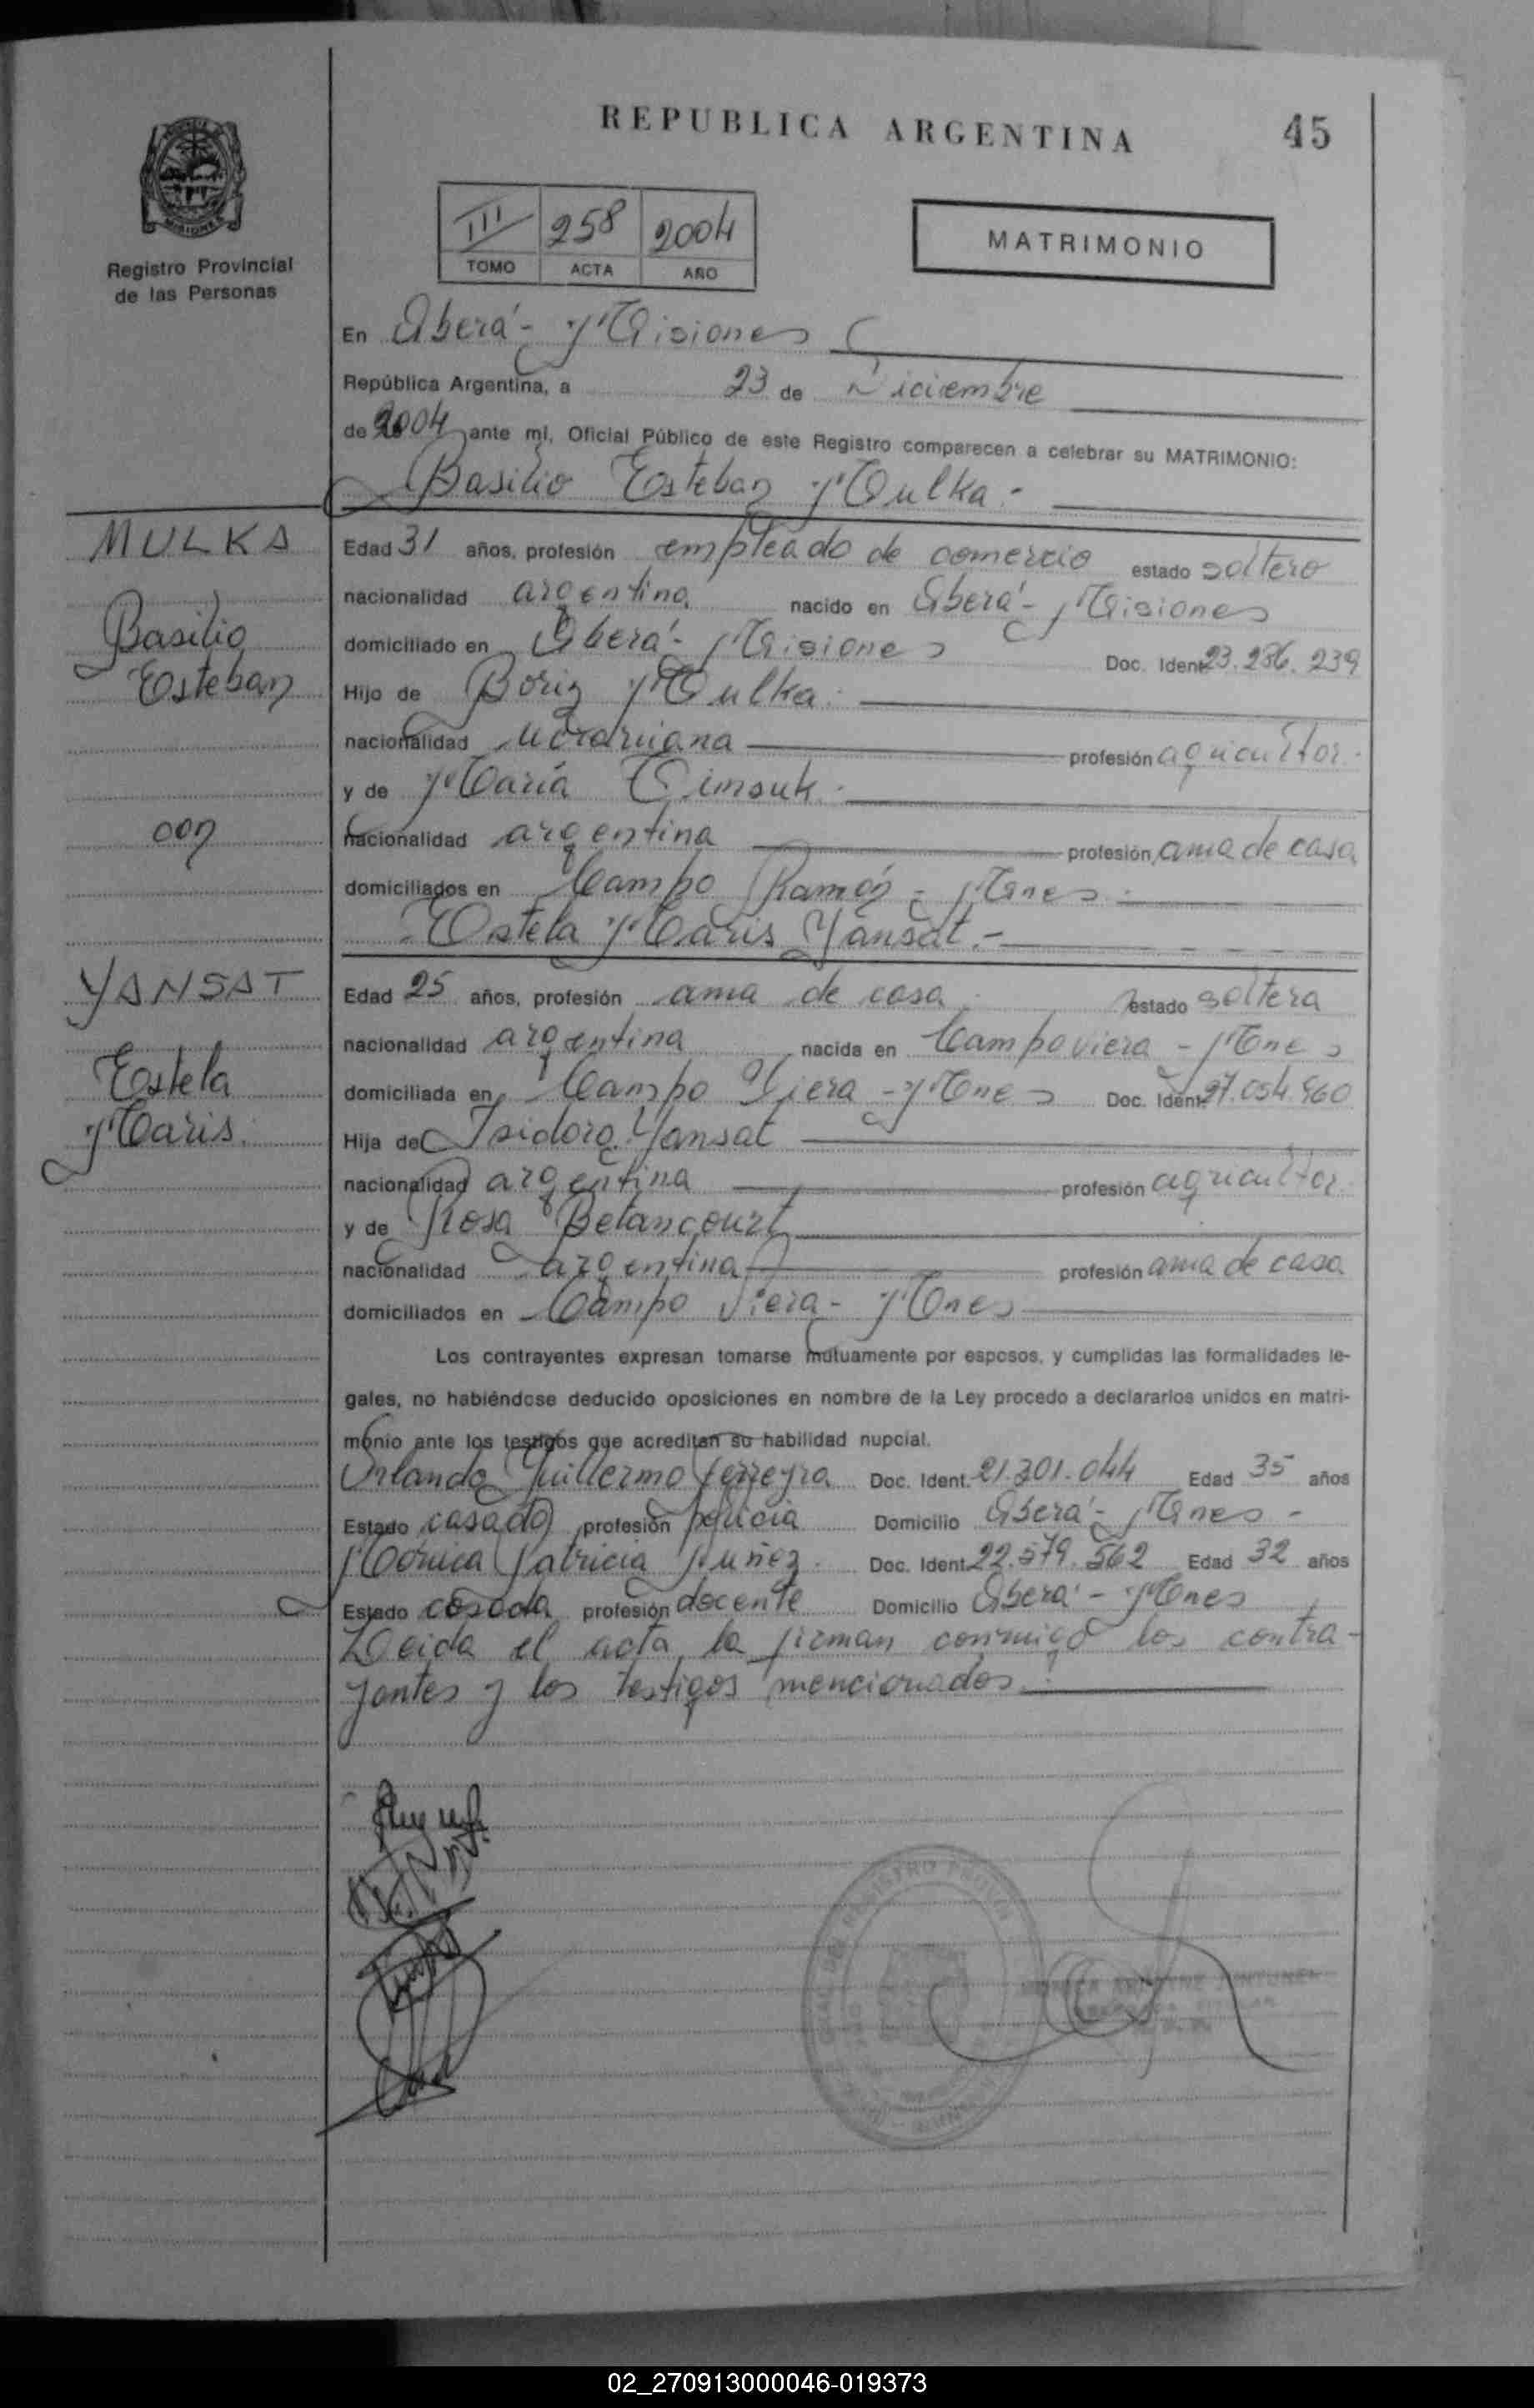 REPUBLICA ARGENTINA
45
MISIONES
Registro Provincial
de las Personas
III 258 2004
TOMO ACTA AÑO
MATRIMONIO
En Oberá - Misiones
República Argentina, a 23 de Diciembre
de 2004 ante mí, Oficial Público de este Registro comparecen a celebrar su MATRIMONIO:
Basilio Esteban Mulka.-
MULKA
Basilio
Esteban
con
YANSAT
Estela
Maris.
Edad 31 años, profesión empleado de comercio estado soltero
nacionalidad argentina nacido en Oberá - Misiones
domiciliado en Oberá - Misiones Doc. Ident. 23.236.239
Hijo de Boriz Mulka.
nacionalidad ucraniana profesión agricultor.
y de María
nacionalidad argentina profesión ama de casa
domiciliados en Campo Ramón - Mnes.
Estela Maris Yansat.-
Edad 25 años, profesión ama de casa estado soltera
nacionalidad argentina nacida en Campo viera - Mnes
domiciliada en Campo Viera - Mnes Doc. Ident. 27.054.960
Hija de Isidoro Yansat
nacionalidad argentina profesión agricultor.
y de Rosa Betancourt
nacionalidad argentina profesión ama de casa
domiciliados en Campo Viera - Mnes
Los contrayentes expresan tomarse mutuamente por esposos, y cumplidas las formalidades le-
gales, no habiéndose deducido oposiciones en nombre de la Ley procedo a declararlos unidos en matri-
monio ante los testigos que acreditan su habilidad nupcial.
Orlando Guillermo Ferreyra Doc. Ident. 21.301.044 Edad 35 años
Estado casado profesión policia Domicilio Oberá - Mnes -
Mónica Patricia Nuñez. Doc. Ident. 22.579.562 Edad 32 años
Estado casada profesión docente Domicilio Oberá - Mnes
Leida el acta, la firman conmigo los contra-
yentes y los testigos mencionados.
02_270913000046-019373